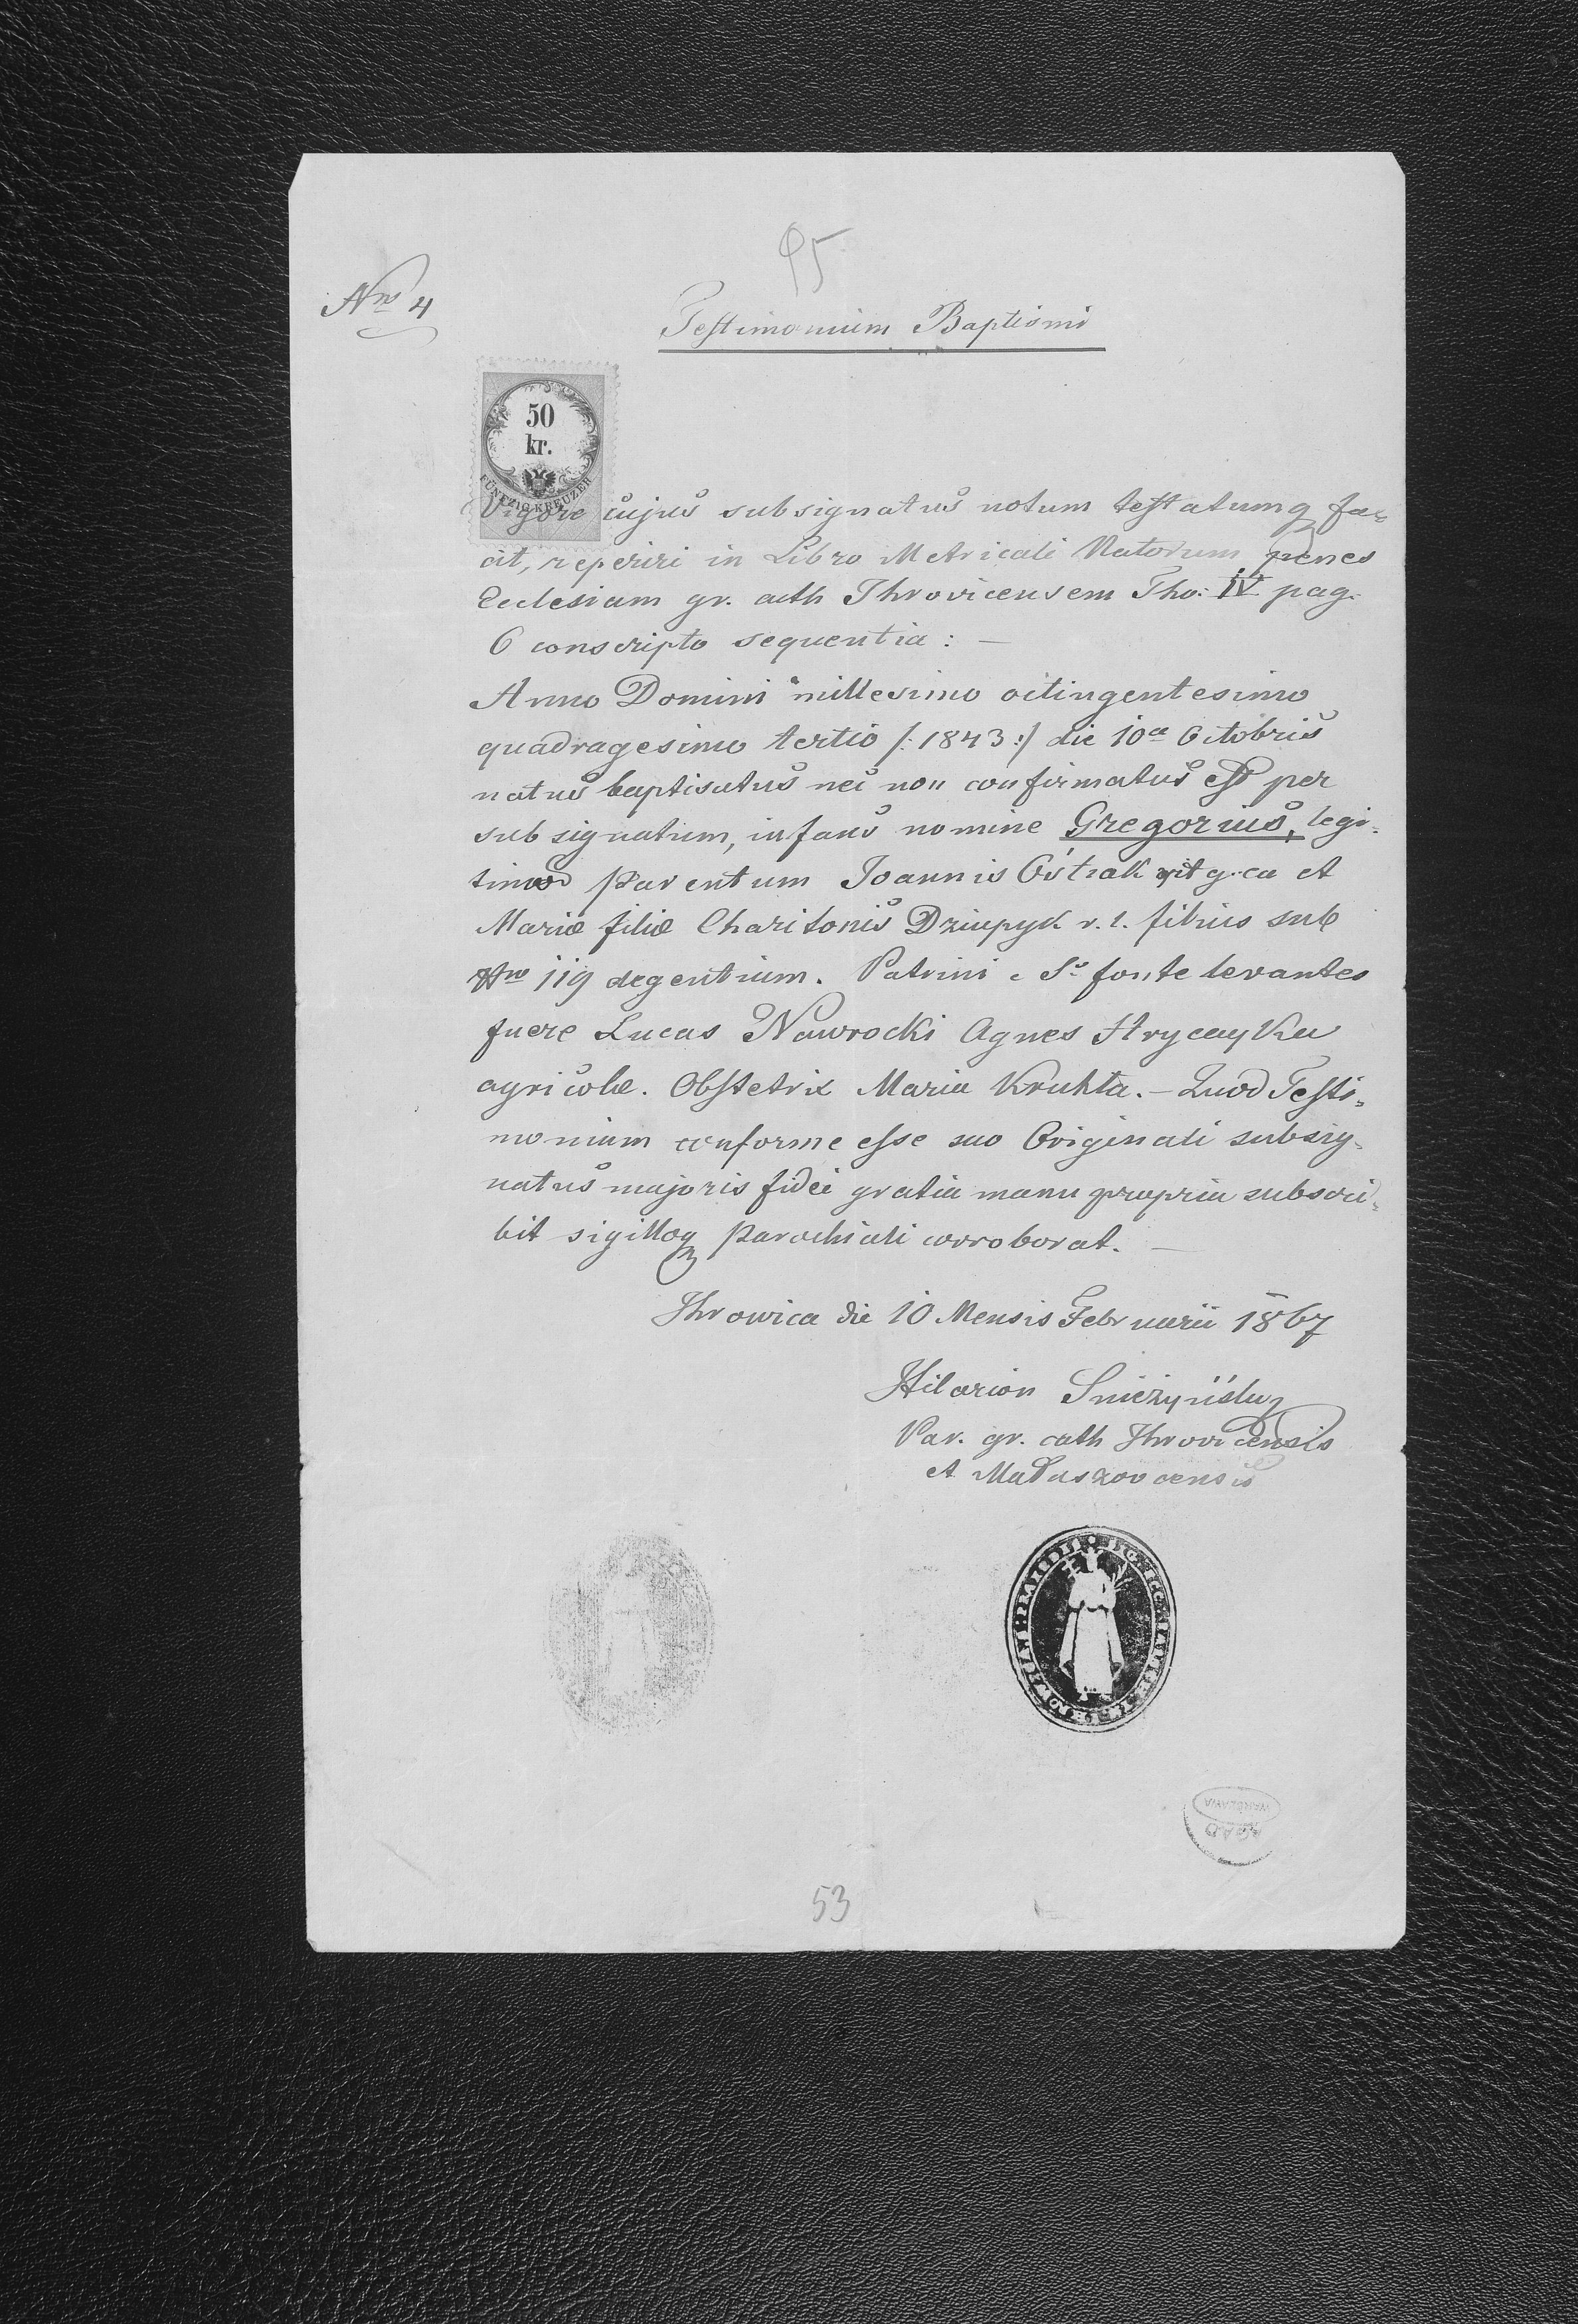 95
Nro 4
Testimonium Baptismi
50
kr.
FÜNFZIG KREUZER
Vigore cujus subsignatus notum testatumq fa=
cit, reperiri in Libro Metricali Natorum penes
Ecclesiam gr. cath Ihrovicensem Tho: IV pag.
6 conscripto sequentia: —
Anno Domini millesimo octingentesimo
quadragesimo tertio /: 1843 :/ die 10a Octobris
natus baptisatus nec non confirmatus est per
subsignatum, infans nomine Gregorius, legi=
timus parentum Joannis Ostrak et
Mariæ filiæ Charitonis Dziupyk r. l. filius sub
Nro 119 degentium. Patrini e So fonte levantes
fuere Lucas Nawrocki Agnes Hrycayka
agricolæ. Obstetrix Maria Kruhta. — Quod Testi=
monium conforme esse suo Originali subsig=
natus majoris fidei gratia manu propria subscri=
bit sigilloq parochiali corroborat. —
Ihrowica die 10 Mensis Februarii 1867
Hilarion Sniezyński
Par. gr. cath Ihrovicensis
et
AGAD
WARSZAWA
53